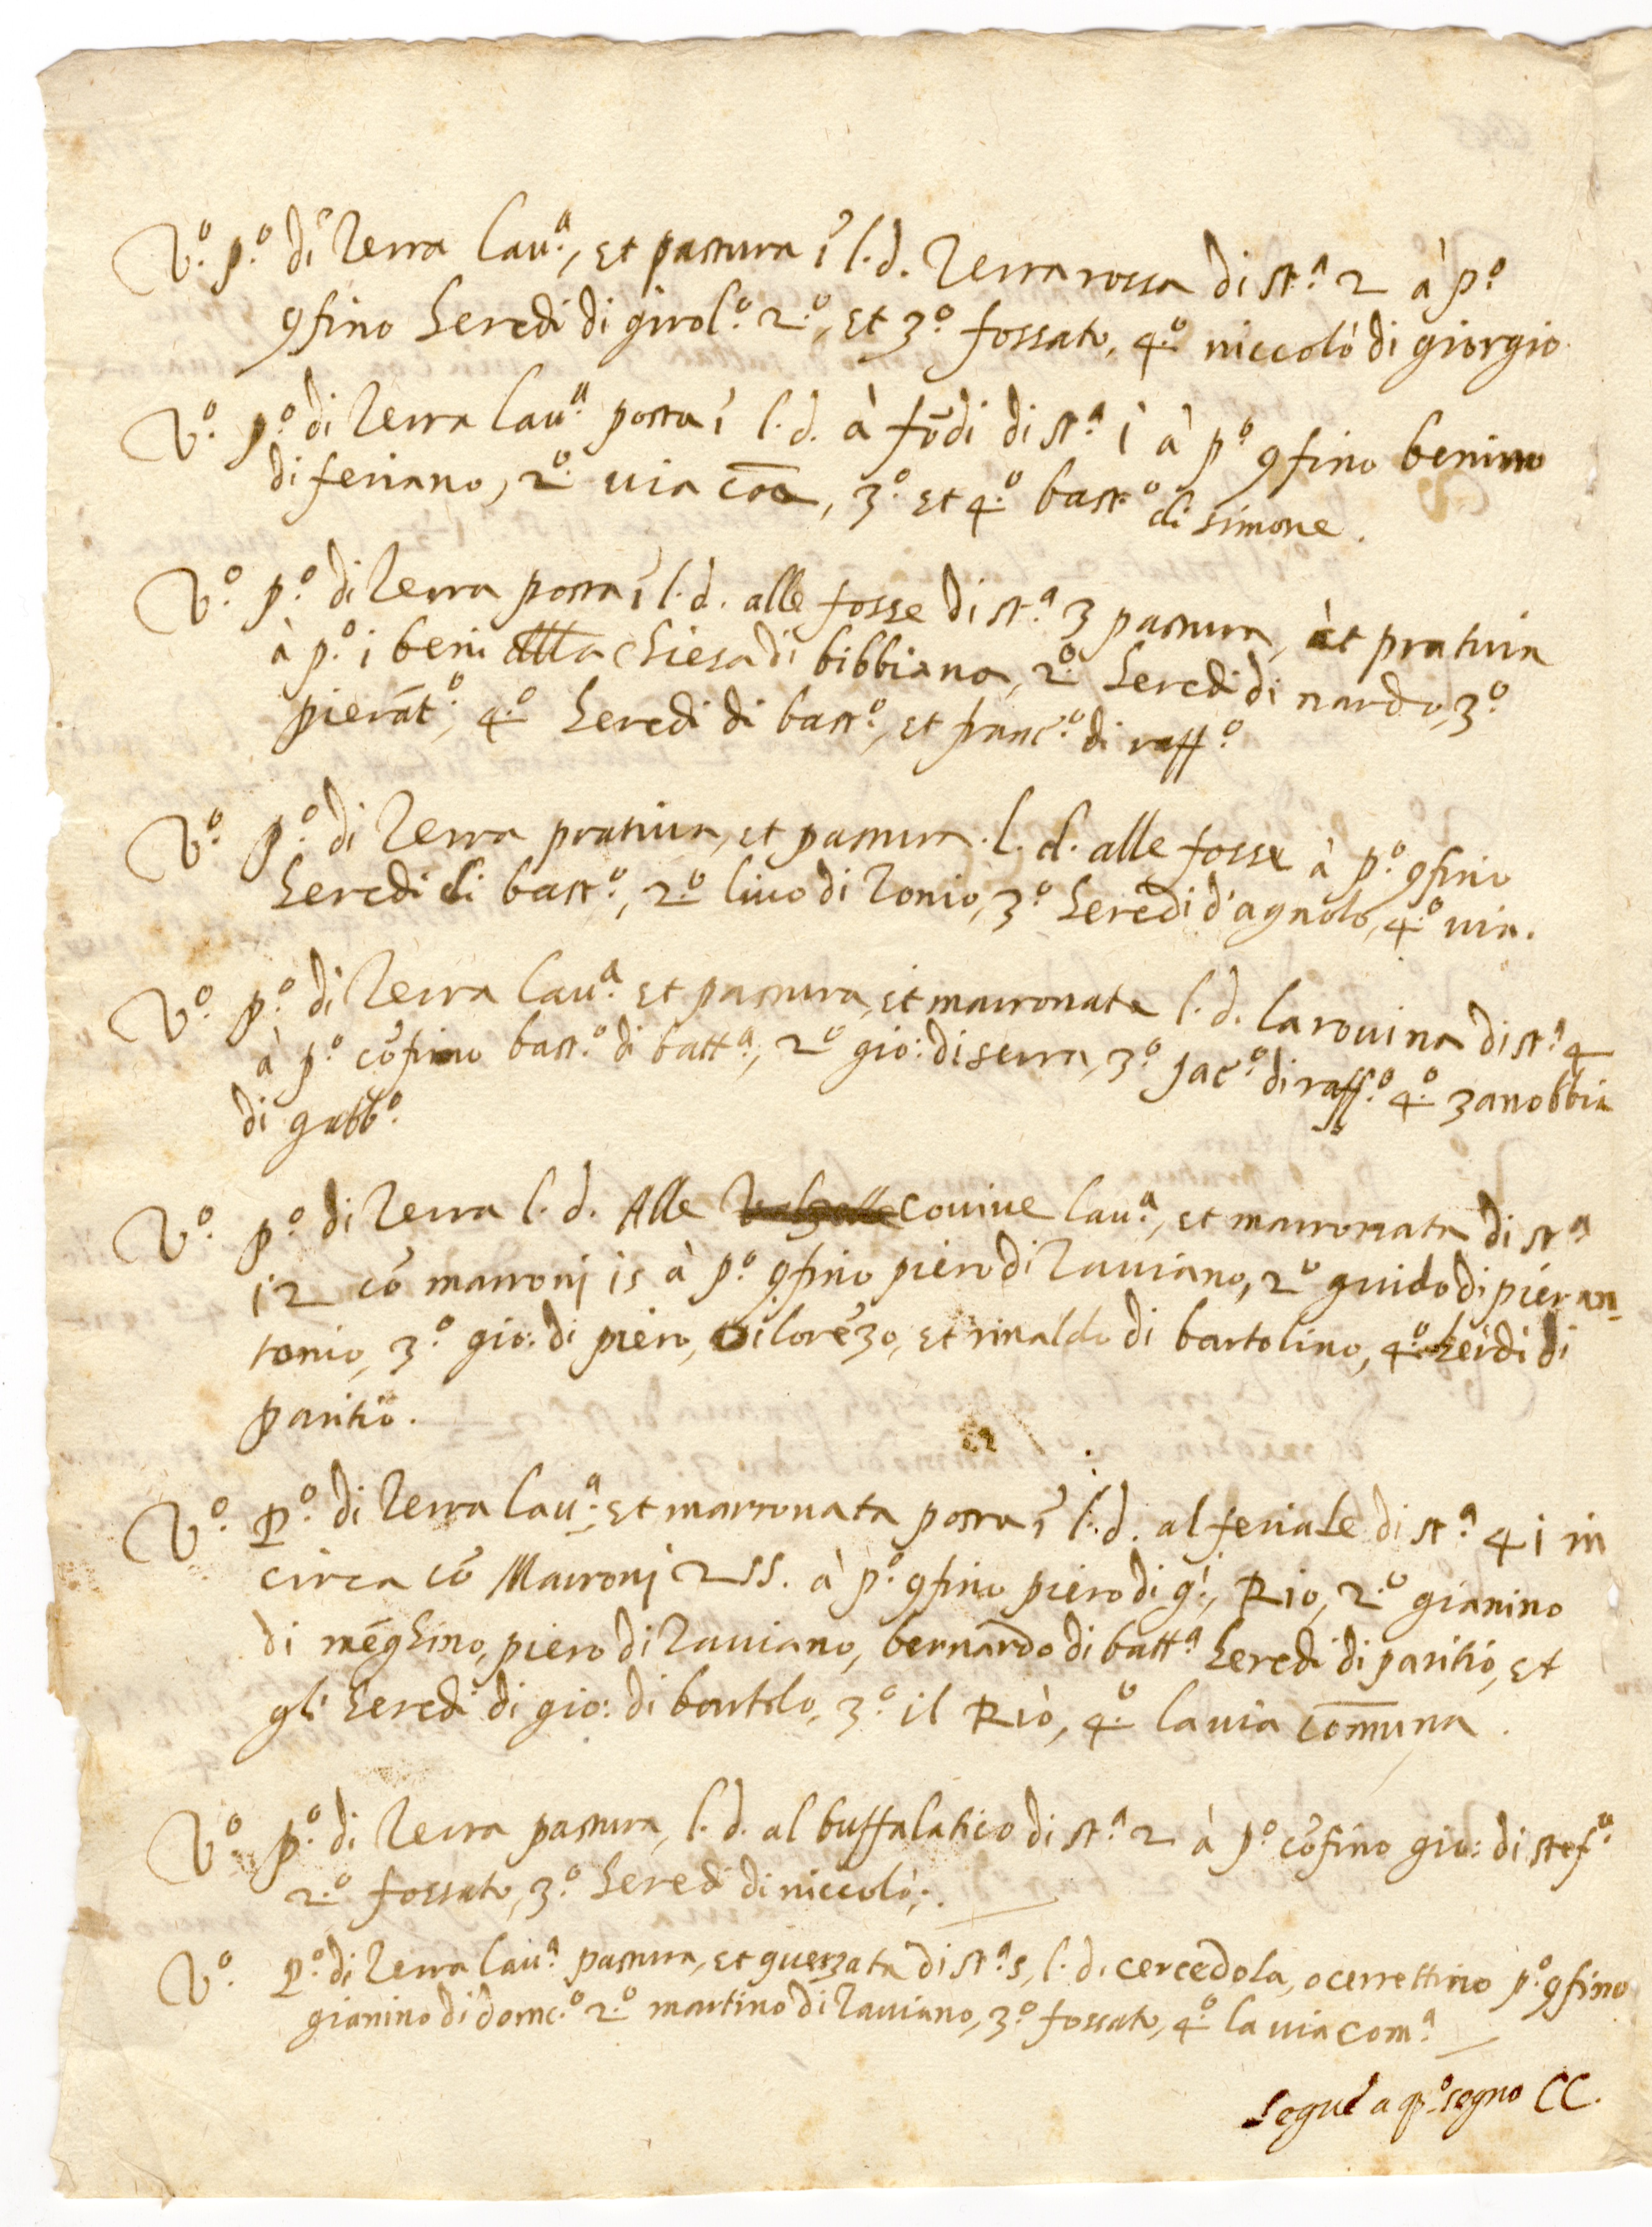 V.º p.º di Terra lau.ª, et pastura ĩ l.d. Terra rossa di st.ª 2 à p.º
9fino heredi di girol.º 2.º, et 3.º fossato, 4.º niccolò di giorgio
V.º p.º di Terra lau.ª posta ĩ l.d. à fõdi di st.ª i à p.º 9fino benino
di feriano, 2.º uia coē, 3.º et 4.º bast.º di simone.
V.º p.º di Terra posta ĩ l.d. alle fosse di st.ª 3 pastura, et pratiua
à p.º i beni della chiesa di bibbiano, 2.º heredi di nardo, 3.º
pierãt.º, 4.º heredi di bast.º, et franc.º di raff.º
V.º p.º di Terra pratiua, et pastura l.d. alle fosse à p.º 9fino
heredi di bast.º, 2.º liuo di Tonio, 3.º heredi d'agnolo, 4.º uia.
V.º p.º di Terra lau.ª et pastura, et marronata l.d. la rouina di st.ª 4
à p.º cõfino bast.º di batt.ª, 2.º gio: di serra, 3.º Jac.º di raff.º 4.º zanobbia
di gabb.º
V.º p.º di Terra l.d. Alle couiue lau.ª, et marronata di st.ª
i2 cõ marroni is à p.º 9fino piero di Tauiano, 2.º guido di pieran-
tonio, 3.º gio: di piero, di lorẽzo, et rinaldo di bartolino, 4.º herẽdi di
paritio.
V.º P.º di Terra lau.ª et marronata posta ĩ l.d. al feriale di st.ª 4i in
circa cõ Marroni 2ss. à p.º 9fino piero di g.i, Rio, 2.º gianino
di mẽghino, piero di Tauiano, bernardo di batt.ª heredi di paritio, et
gli heredi di gio: di bartolo, 3.º il Rio, 4.º la uia comuna.
V.º p.º di Terra pastura, l.d. al buffalatico di st.ª 2 à p.º cõfino gio: di stef.º
2.º fossato, 3.º heredi di niccolò;.
V.º P.º di Terra lau.ª pastura, et querzata di st.ª s, l.d. cercedola, o cerrettino p.º 9fino
gianino di domc.º 2.º martino di Tauiano, 3.º fossato, 4.º la uia com.ª
Segue a q.º segno CC.